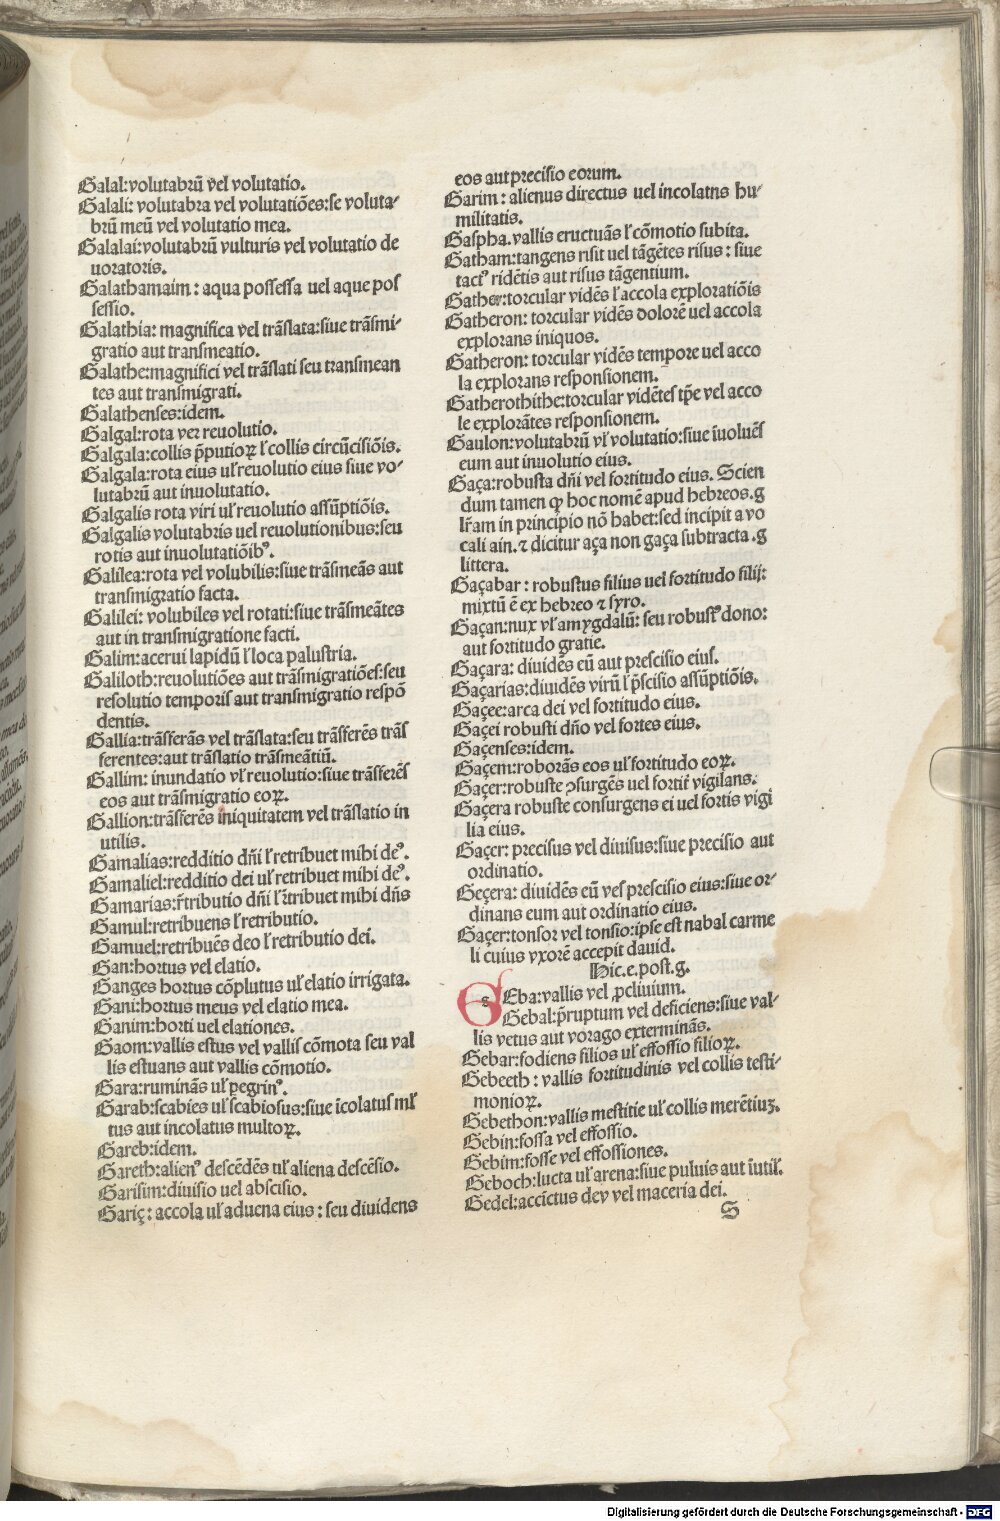 Galal:volutabrũ vel volutatio.
Galali: volutabra vel volutatiões:se voluta-
brũ meũ vel volutatio mea.
Galalai:volutabrũ vulturis vel volutatio de
uoratoris.
Galathamaim: aqua possessa uel aque pos
sessio.
Galathia: magnifica vel trãslata:siue trãsmi-
gratio aut transmeatio.
Galathe:magnifici vel trãslati seu transmean
tes aut transmigrati.
Galathenses:idem.
Galgal:rota ver reuolutio.
Galgala:collis p̃putioꝝ ł collis circũcisiõis.
Galgala:rota eius uł reuolutio eius siue vo-
lutabrũ aut inuolutatio.
Galgalis rota viri uł reuolutio assũptiõis.
Galgalis volutabris uel reuolutionibus:seu
rotis aut inuolutatiõibꝰ.
Galilea:rota vel volubilis:siue trãsmeãs aut
transmigratio facta.
Galilei: volubiles vel rotati:siue trãsmeãtes
aut in transmigratione facti.
Galim:acerui lapidũ ł loca palustria.
Galiloth:reuolutiões aut trãsmigratiões:seu
resolutio temporis aut transmigratio respõ
dentis.
Gallia:trãsferãs vel trãslata:seu trãsferẽs trãs
ferentes:aut trãslatio trãsmeãtiũ.
Gallim: inundatio vł reuolutio:siue trãsferẽs
eos aut trãsmigratio eoꝝ.
Gallion:trãsferẽs iniquitatem vel trãslatio in
utilis.
Gamalias:redditio dñi ł retribuet mihi deꝰ.
Gamaliel:redditio dei uł retribuet mihi deꝰ.
Gamarias:r̃tributio dñi ł r̃tribuet mihi dñs
Gamul:retribuens ł retributio.
Gamuel:retribuẽs deo ł retributio dei.
Gan:hortus vel elatio.
Ganges hortus cõplutus uł elatio irrigata.
Gani:hortus meus vel elatio mea.
Ganim:horti uel elationes.
Gaom:vallis estus vel vallis cõmota seu val
lis estuans aut vallis cõmotio.
Gara:ruminãs uł ꝑegrinꝰ.
Garab:scabies uł scabiosus:siue ĩcolatus mł
tus aut incolatus multoꝝ.
Gareb:idem.
Gareth:alienꝰ descẽdẽs uł aliena descẽsio.
Garisim:diuisio uel abscisio.
Gariç: accola uł aduena eius: seu diuidens
eos aut precisio eorum.
Garim: alienus directus uel incolatns hu-
militatis.
Gaspha.vallis eructuãs ł cõmotio subita.
Gatham:tangens risit uel tãgẽtes risus: siue
tactꝰ ridẽtis aut risus tãgentium.
Gather:torcular vidẽs ł accola exploratiõis
Gatheron: torcular vidẽs dolorẽ uel accola
explorans iniquos.
Gatheron: torcular vidẽs tempore uel acco
la explorans responsionem.
Gatherothithe:torcular vidẽtes tp̃e vel acco
le explorãtes responsionem.
Gaulon:volutabrũ vł volutatio:siue ĩuoluẽs
eum aut inuolutio eius.
Gaça:robusta dñi vel fortitudo eius. Scien
dum tamen ꝙ hoc nomẽ apud hebreos.g
lr̃am in principio nõ habet:sed incipit a vo
cali ain.⁊ dicitur aça non gaça subtracta.g
littera.
Gaçabar: robustus filius uel fortitudo filij:
mixtũ ẽ ex hebreo ⁊ syro.
Gaçan:nux vł amygdalũ: seu robustꝰ dono:
aut fortitudo gratie.
Gaçara: diuidẽs eũ aut prescisio eius.
Gaçarias:diuidẽs virũ ł p̃scisio assũptiõis.
Gaçee:arca dei vel fortitudo eius.
Gaçei robusti dño vel fortes eius.
Gaçenses:idem.
Gaçem:roborãs eos uł fortitudo eoꝝ.
Gaçer:robuste ↄsurgẽs uel fortit̃ vigilans.
Gaçera robuste consurgens ei uel fortis vigi
lia eius.
Gaçer: precisus vel diuisus:siue precisio aut
ordinatio.
Geçera: diuidẽs eũ ves prescisio eius:siue or-
dinans eum aut ordinatio eius.
Gaçer:tonsor vel tonsio:ipse est nabal carme
li cuius vxorẽ accepit dauid.
Hic.e.post.g.
GEba:vallis vel ꝓcliuium.
Gebal:p̃ruptum vel deficiens:siue val-
lis vetus aut vorago exterminãs.
Gebar:fodiens filios uł effossio filioꝝ.
Gebeeth: vallis fortitudinis vel collis testi-
monioꝝ.
Gebethon:vallis mestitie uł collis merẽtiuꝫ.
Gebin:fossa vel effossio.
Gebim:fosse vel effossiones.
Geboch:lucta uł arena:siue puluis aut ĩutił.
Gedel:accĩctus dey vel maceria dei.
S
Digitalisierung gefördert durch die Deutsche Forschungsgemeinschaft - DFG